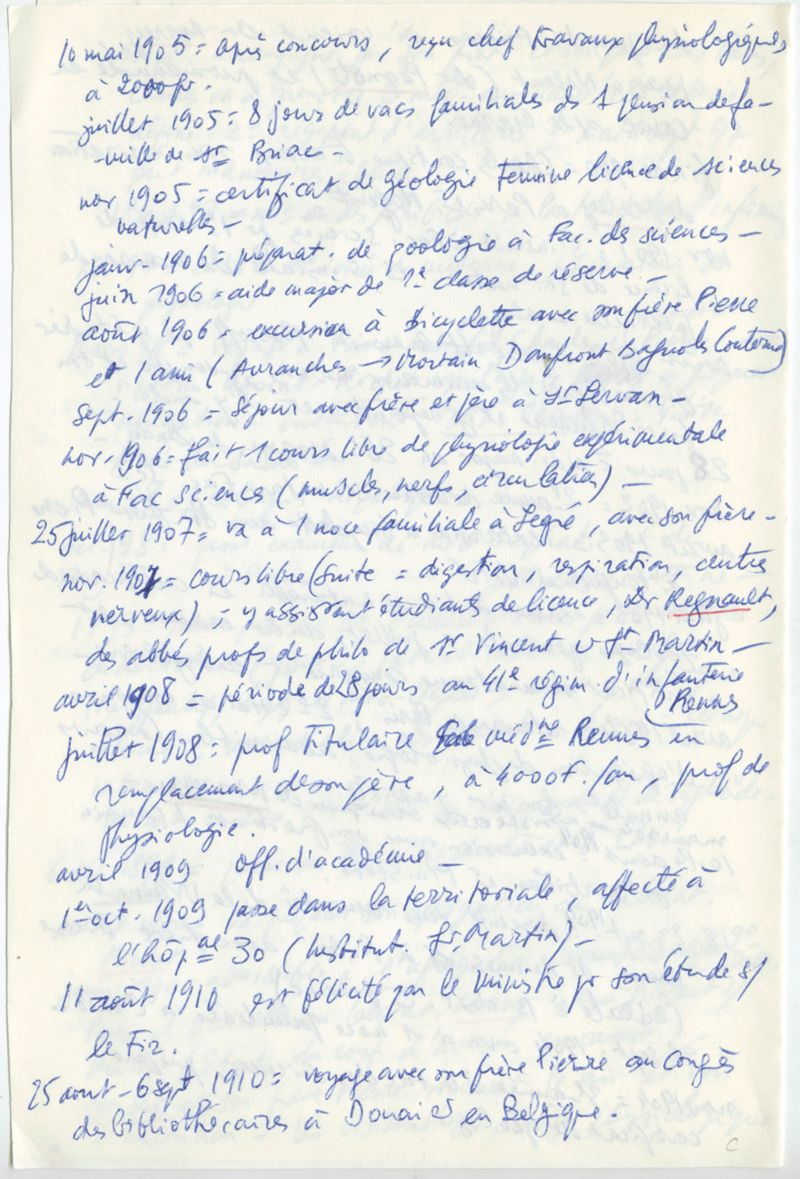 10 mai 1905 = après concours, reçu chef travaux physiologiques
à 2000fr.
juillet 1905 = 8 jours de vacs familiales ds 1 pension de fa-
-mille de St Briac -
nov 1905 = certificat de géologie termine licence de sciences
naturelles -
janv. 1906 = préparat. de zoologie à Fac. des sciences -
juin 1906 = aide major de 1e classe de réserve -
août 1906 = excursion à bicyclette avec son frère Pierre
et 1 ami (Avranches → Mortain Domfront Bagnoles Couterne)
sept. 1906 = séjour avec frère et père à St Servan -
nov. 1906 = fait 1 cours libre de physiologie expérimentale
à Fac sciences (muscles, nerfs, circulation) -
25 juillet 1907 = va à 1 noce familiale à Segré, avec son frère -
nov. 1907 = cours libre (suite = digestion, respiration, centres
nerveux) = y assistent étudiants de licence, Dr Regnault,
des abbés profs de philo de St Vincent & St Martin -
avril 1908 = période de 28 jours au 41e régim d'infanterie
(Rennes
juillet 1908 = prof titulaire médne Rennes en
remplacement de son père, à 4000F./an, prof de
physiologie.
avril 1909 off. d'académie -
1er oct. 1909 passe dans la territoriale, affecté à
l'hôpal 30 (Institut. St Martin) -
11 août 1910 est félicité par le ministre pr son étude s/
le
25 aout - 6 sept 1910 = voyage avec son frère Pierre au Congrès
des bibliothécaires à en Belgique.
C